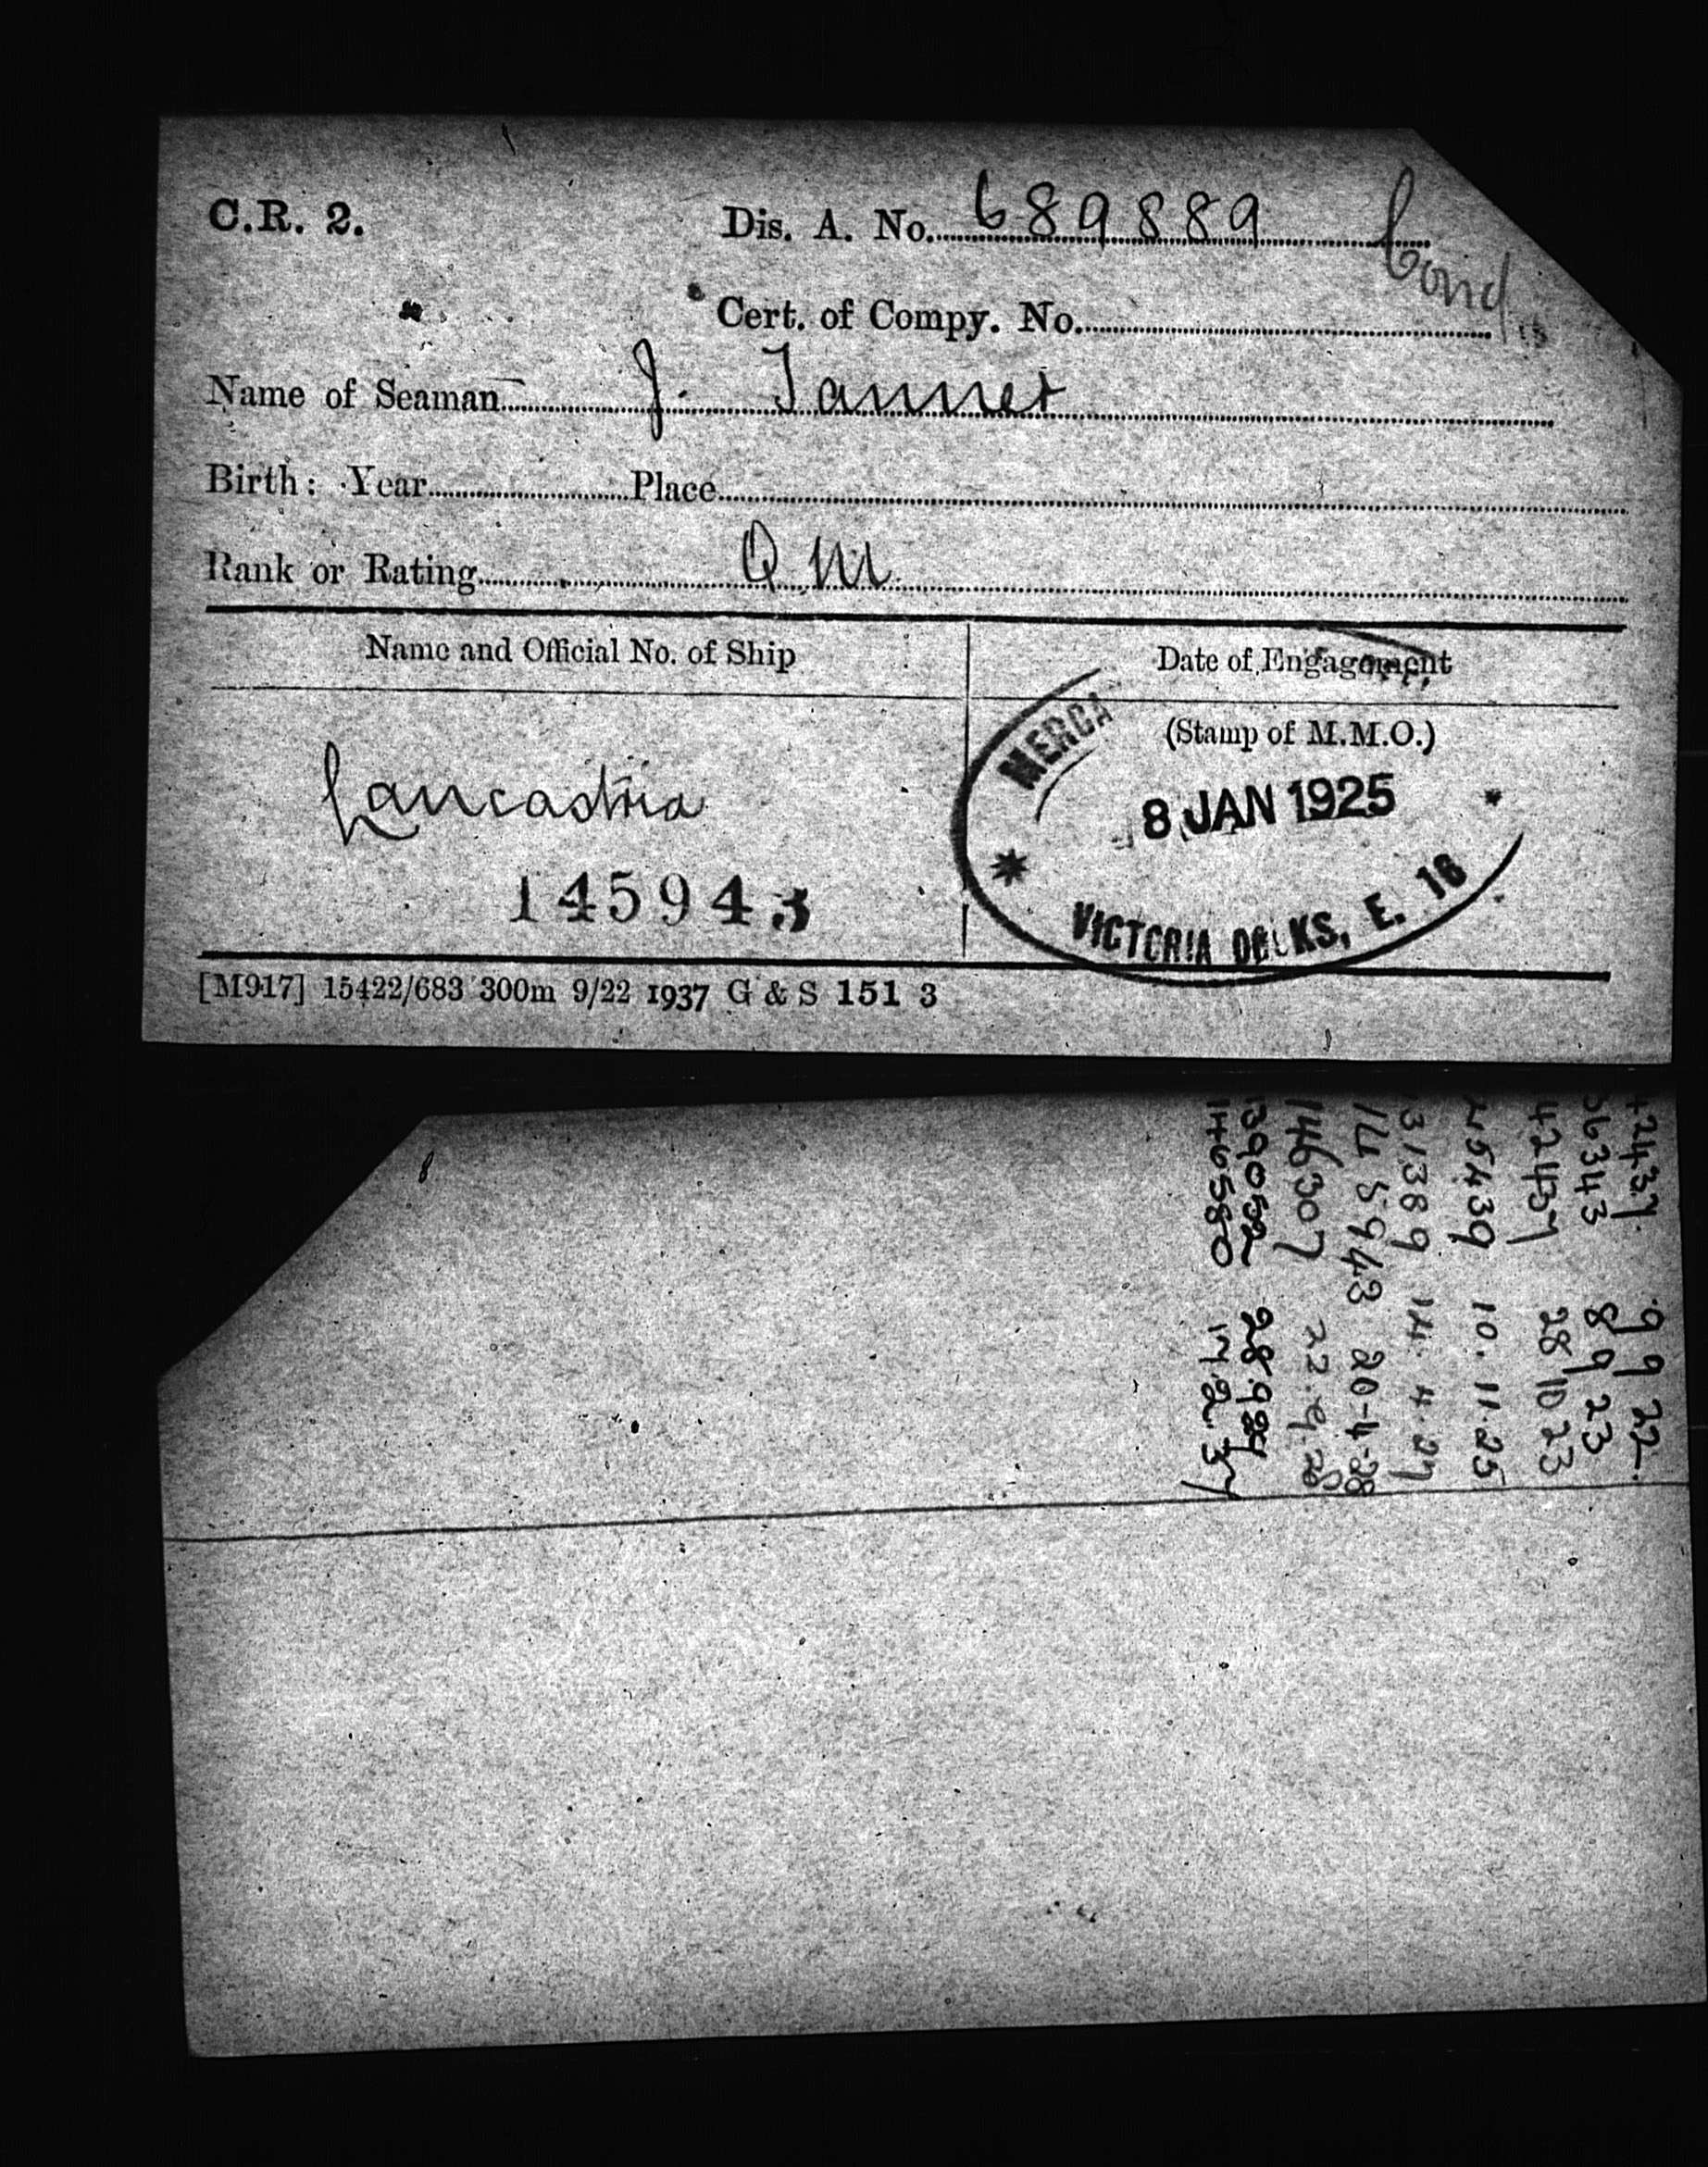 C.R. 2.
Dis. A. No. 689889
Cond
Cert. of Compy. No.
Name of Seaman J. Tanner
Birth: Year Place
Rank or Rating Q.M.
Name and Official No. of Ship
Date of Engagement
(Stamp of M.M.O.)
MERCA
Lancastria
8 JAN 1925
145943
VICTORIA DOCKS, E. 16
[M917] 15422/683 300m 9/22 1937 G & S 151 3
42437 9 9 22
56343 8 9 23
42437 28 10 23
45439 10.11.25
31389 14.4.27
145943 20-4-28
146307 22.9.28
139052 28.9.29
146580 17.2.37